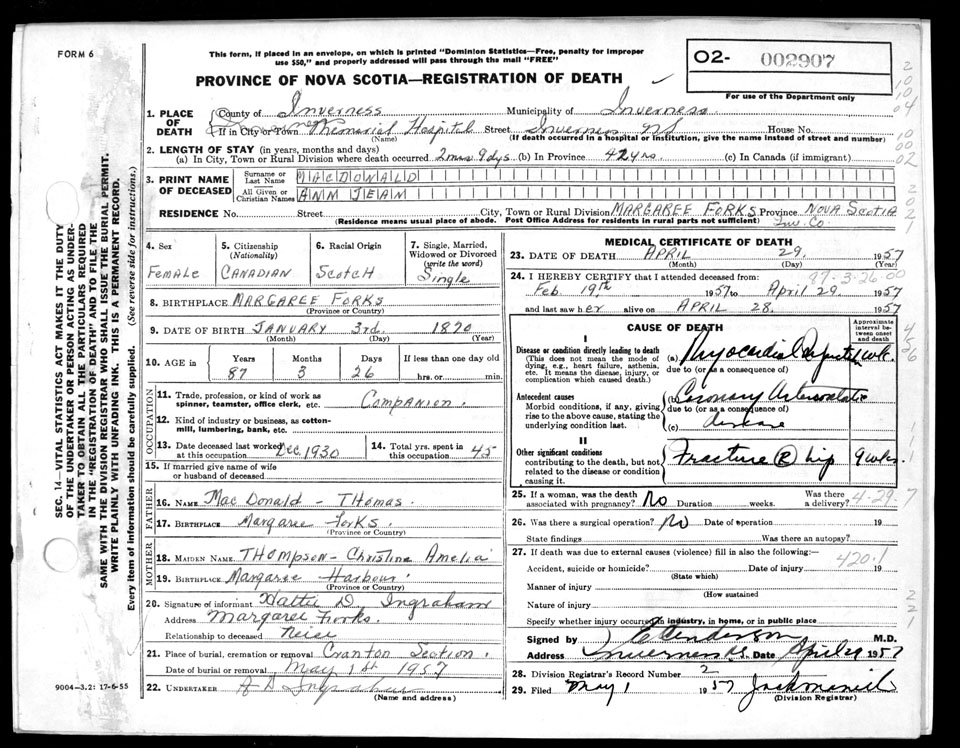 FORM 6
This form, if placed in an envelope, on which is printed "Dominion Statistics—Free, penalty for improper
use $50," and properly addressed will pass through the mail "FREE"
PROVINCE OF NOVA SCOTIA—REGISTRATION OF DEATH
02- 002907
For use of the Department only
1. PLACE OF DEATH
County of Inverness Municipality of Inverness
If in City or Town Memorial Hospital Street Inverness NS House No.
(Name) (If death occurred in a hospital or institution, give the name instead of street and number)
2. LENGTH OF STAY (in years, months and days)
(a) In City, Town or Rural Division where death occurred 2 mos 9 dys (b) In Province 42 yrs. (c) In Canada (if immigrant)
3. PRINT NAME OF DECEASED
Surname or Last Name MACDONALD
All Given or Christian Names ANN JEAN
RESIDENCE No. Street City, Town or Rural Division MARGAREE FORKS Province NOVA SCOTIA
(Residence means usual place of abode. Post Office Address for residents in rural parts not sufficient) Inv. Co
4. Sex FEMALE
5. Citizenship (Nationality) CANADIAN
6. Racial Origin SCOTCH
7. Single, Married, Widowed or Divorced (write the word) Single
8. BIRTHPLACE MARGAREE FORKS
(Province or Country)
9. DATE OF BIRTH JANUARY 3rd. 1870
(Month) (Day) (Year)
10. AGE in Years 87 Months 3 Days 26 If less than one day old hrs. or min.
OCCUPATION
11. Trade, profession, or kind of work as spinner, teamster, office clerk, etc. Companion.
12. Kind of industry or business, as cotton-mill, lumbering, bank, etc.
13. Date deceased last worked at this occupation Dec. 1930
14. Total yrs. spent in this occupation 45
15. If married give name of wife or husband of deceased
FATHER
16. NAME MacDonald - Thomas.
17. BIRTHPLACE Margaree Forks.
(Province or Country)
MOTHER
18. MAIDEN NAME THOMPSON - Christina Amelia
19. BIRTHPLACE Margaree Harbour.
(Province or Country)
20. Signature of informant Hattie D. Ingraham
Address Margaree Forks.
Relationship to deceased Neice
21. Place of burial, cremation or removal Cranton Section.
Date of burial or removal May 1st 1957
22. UNDERTAKER Ingraham
(Name and address)
9004—3.2: 17-6-55
MEDICAL CERTIFICATE OF DEATH
23. DATE OF DEATH APRIL 29. 1957
(Month) (Day) (Year)
24. I HEREBY CERTIFY that I attended deceased from: 97-3-26-00
Feb 19th 1957 to April 29. 1957
and last saw her alive on APRIL 28. 1957
CAUSE OF DEATH
Approximate interval between onset and death
I
Disease or condition directly leading to death
(This does not mean the mode of dying, e.g., heart failure, asthenia, etc. It means the disease, injury, or complication which caused death.)
(a) Myocardial 1 wk.
due to (or as a consequence of)
Antecedent causes
Morbid conditions, if any, giving rise to the above cause, stating the underlying condition last.
(b) Coronary
due to (or as a consequence of)
(c) disease
II
Other significant conditions
contributing to the death, but not related to the disease or condition causing it.
Fracture (R) hip 9 wks.
25. If a woman, was the death associated with pregnancy? No Duration weeks. Was there a delivery? 4-29-7
26. Was there a surgical operation? No Date of operation 19
State findings Was there an autopsy?
27. If death was due to external causes (violence) fill in also the following:—
420.1
Accident, suicide or homicide? Date of injury 19
(State which)
Manner of injury
(How sustained
Nature of injury
Specify whether injury occurred in industry, in home, or in public place
Signed by M.D.
Address Inverness N.S. Date April 29 1957
28. Division Registrar's Record Number 2
29. Filed May 1 1957
(Division Registrar)
SEC. 14—VITAL STATISTICS ACT MAKES IT THE DUTY
OF THE UNDERTAKER OR PERSON ACTING AS UNDER-
TAKER TO OBTAIN ALL THE PARTICULARS REQUIRED
IN THE "REGISTRATION OF DEATH" AND TO FILE THE
SAME WITH THE DIVISION REGISTRAR WHO SHALL ISSUE THE BURIAL PERMIT.
WRITE PLAINLY WITH UNFADING INK. THIS IS A PERMANENT RECORD.
Every item of information should be carefully supplied. (See reverse side for instructions.)